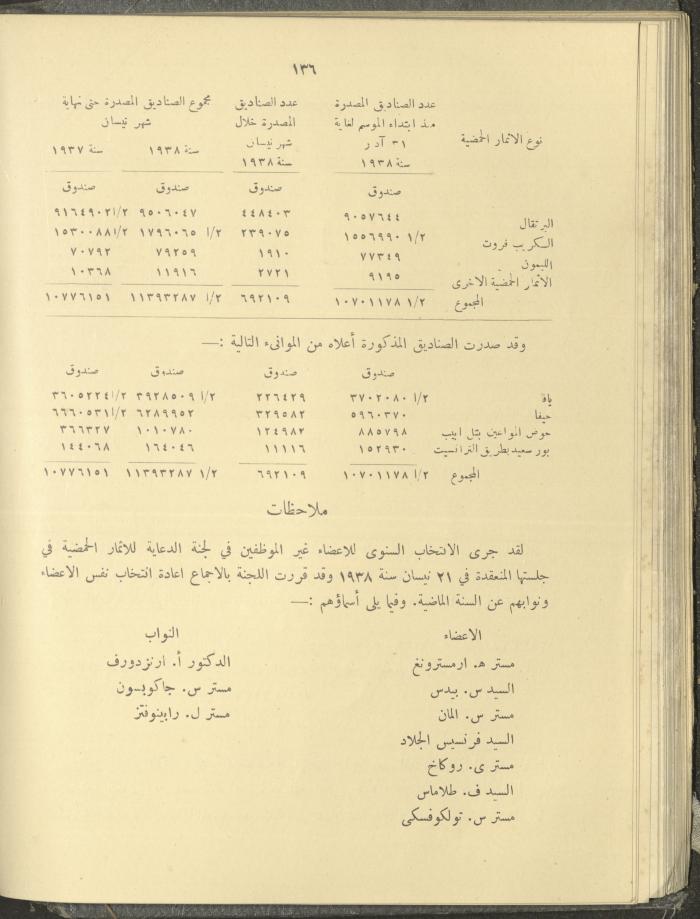 ١٣٦
نوع الاثمار الحمضية | عدد الصناديق المصدرة منذ ابتداء الموسم لغاية ٣١ آذار سنة ١٩٣٨ | عدد الصناديق المصدرة خلال شهر نيسان سنة ١٩٣٨ | مجموع الصناديق المصدرة حتى نهاية شهر نيسان سنة ١٩٣٨ | سنة ١٩٣٧
صندوق | صندوق | صندوق | صندوق
البرتقال | ٩٠٥٧٦٤٤ | ٤٤٨٤٠٣ | ٩٥٠٦٠٤٧ | ٩١٦٤٩٠٢ ١/٢
الكريب فروت | ١٥٥٦٩٩٠ ١/٢ | ٢٣٩٠٧٥ | ١٧٩٦٠٦٥ ١/٢ | ١٥٣٠٠٨٨ ١/٢
الليمون | ٧٧٣٤٩ | ١٩١٠ | ٧٩٢٥٩ | ٧٠٧٩٢
الاثمار الحمضية الاخرى | ٩١٩٥ | ٢٧٢١ | ١١٩١٦ | ١٠٣٦٨
المجموع | ١٠٧٠١١٧٨ ١/٢ | ٦٩٢١٠٩ | ١١٣٩٣٢٨٧ ١/٢ | ١٠٧٧٦١٥١
وقد صدرت الصناديق المذكورة أعلاه من الموانىء التالية :—
صندوق | صندوق | صندوق | صندوق
يافا | ٣٧٠٢٠٨٠ ١/٢ | ٢٢٦٤٢٩ | ٣٩٢٨٥٠٩ ١/٢ | ٣٦٠٥٢٢٤ ١/٢
حيفا | ٥٩٦٠٣٧٠ | ٣٢٩٥٨٢ | ٦٢٨٩٩٥٢ | ٦٦٦٠٥٣١ ١/٢
حوض المواعين بتل ابيب | ٨٨٥٧٩٨ | ١٢٤٩٨٢ | ١٠١٠٧٨٠ | ٣٦٦٣٢٧
بور سعيد بطريق الترانسيت | ١٥٢٩٣٠ | ١١١١٦ | ١٦٤٠٤٦ | ١٤٤٠٦٨
المجموع | ١٠٧٠١١٧٨ ١/٢ | ٦٩٢١٠٩ | ١١٣٩٣٢٨٧ ١/٢ | ١٠٧٧٦١٥١
ملاحظات
لقد جرى الانتخاب السنوى للاعضاء غير الموظفين في لجنة الدعاية للاثمار الحمضية في
جلستها المنعقدة في ٢١ نيسان سنة ١٩٣٨ وقد قررت اللجنة بالاجماع اعادة انتخاب نفس الاعضاء
ونوابهم عن السنة الماضية. وفيما يلى أسماؤهم :—
الاعضاء | النواب
مستر ه. ارمسترونغ | الدكتور أ. ارنزدورف
السيد س. بيدس | مستر س. جاكوبسون
مستر س. المان | مستر ل. رابينوفتز
السيد فرنسيس الجلاد
مستر ى. روكاخ
السيد ف. طلاماس
مستر س. تولكوفسكى